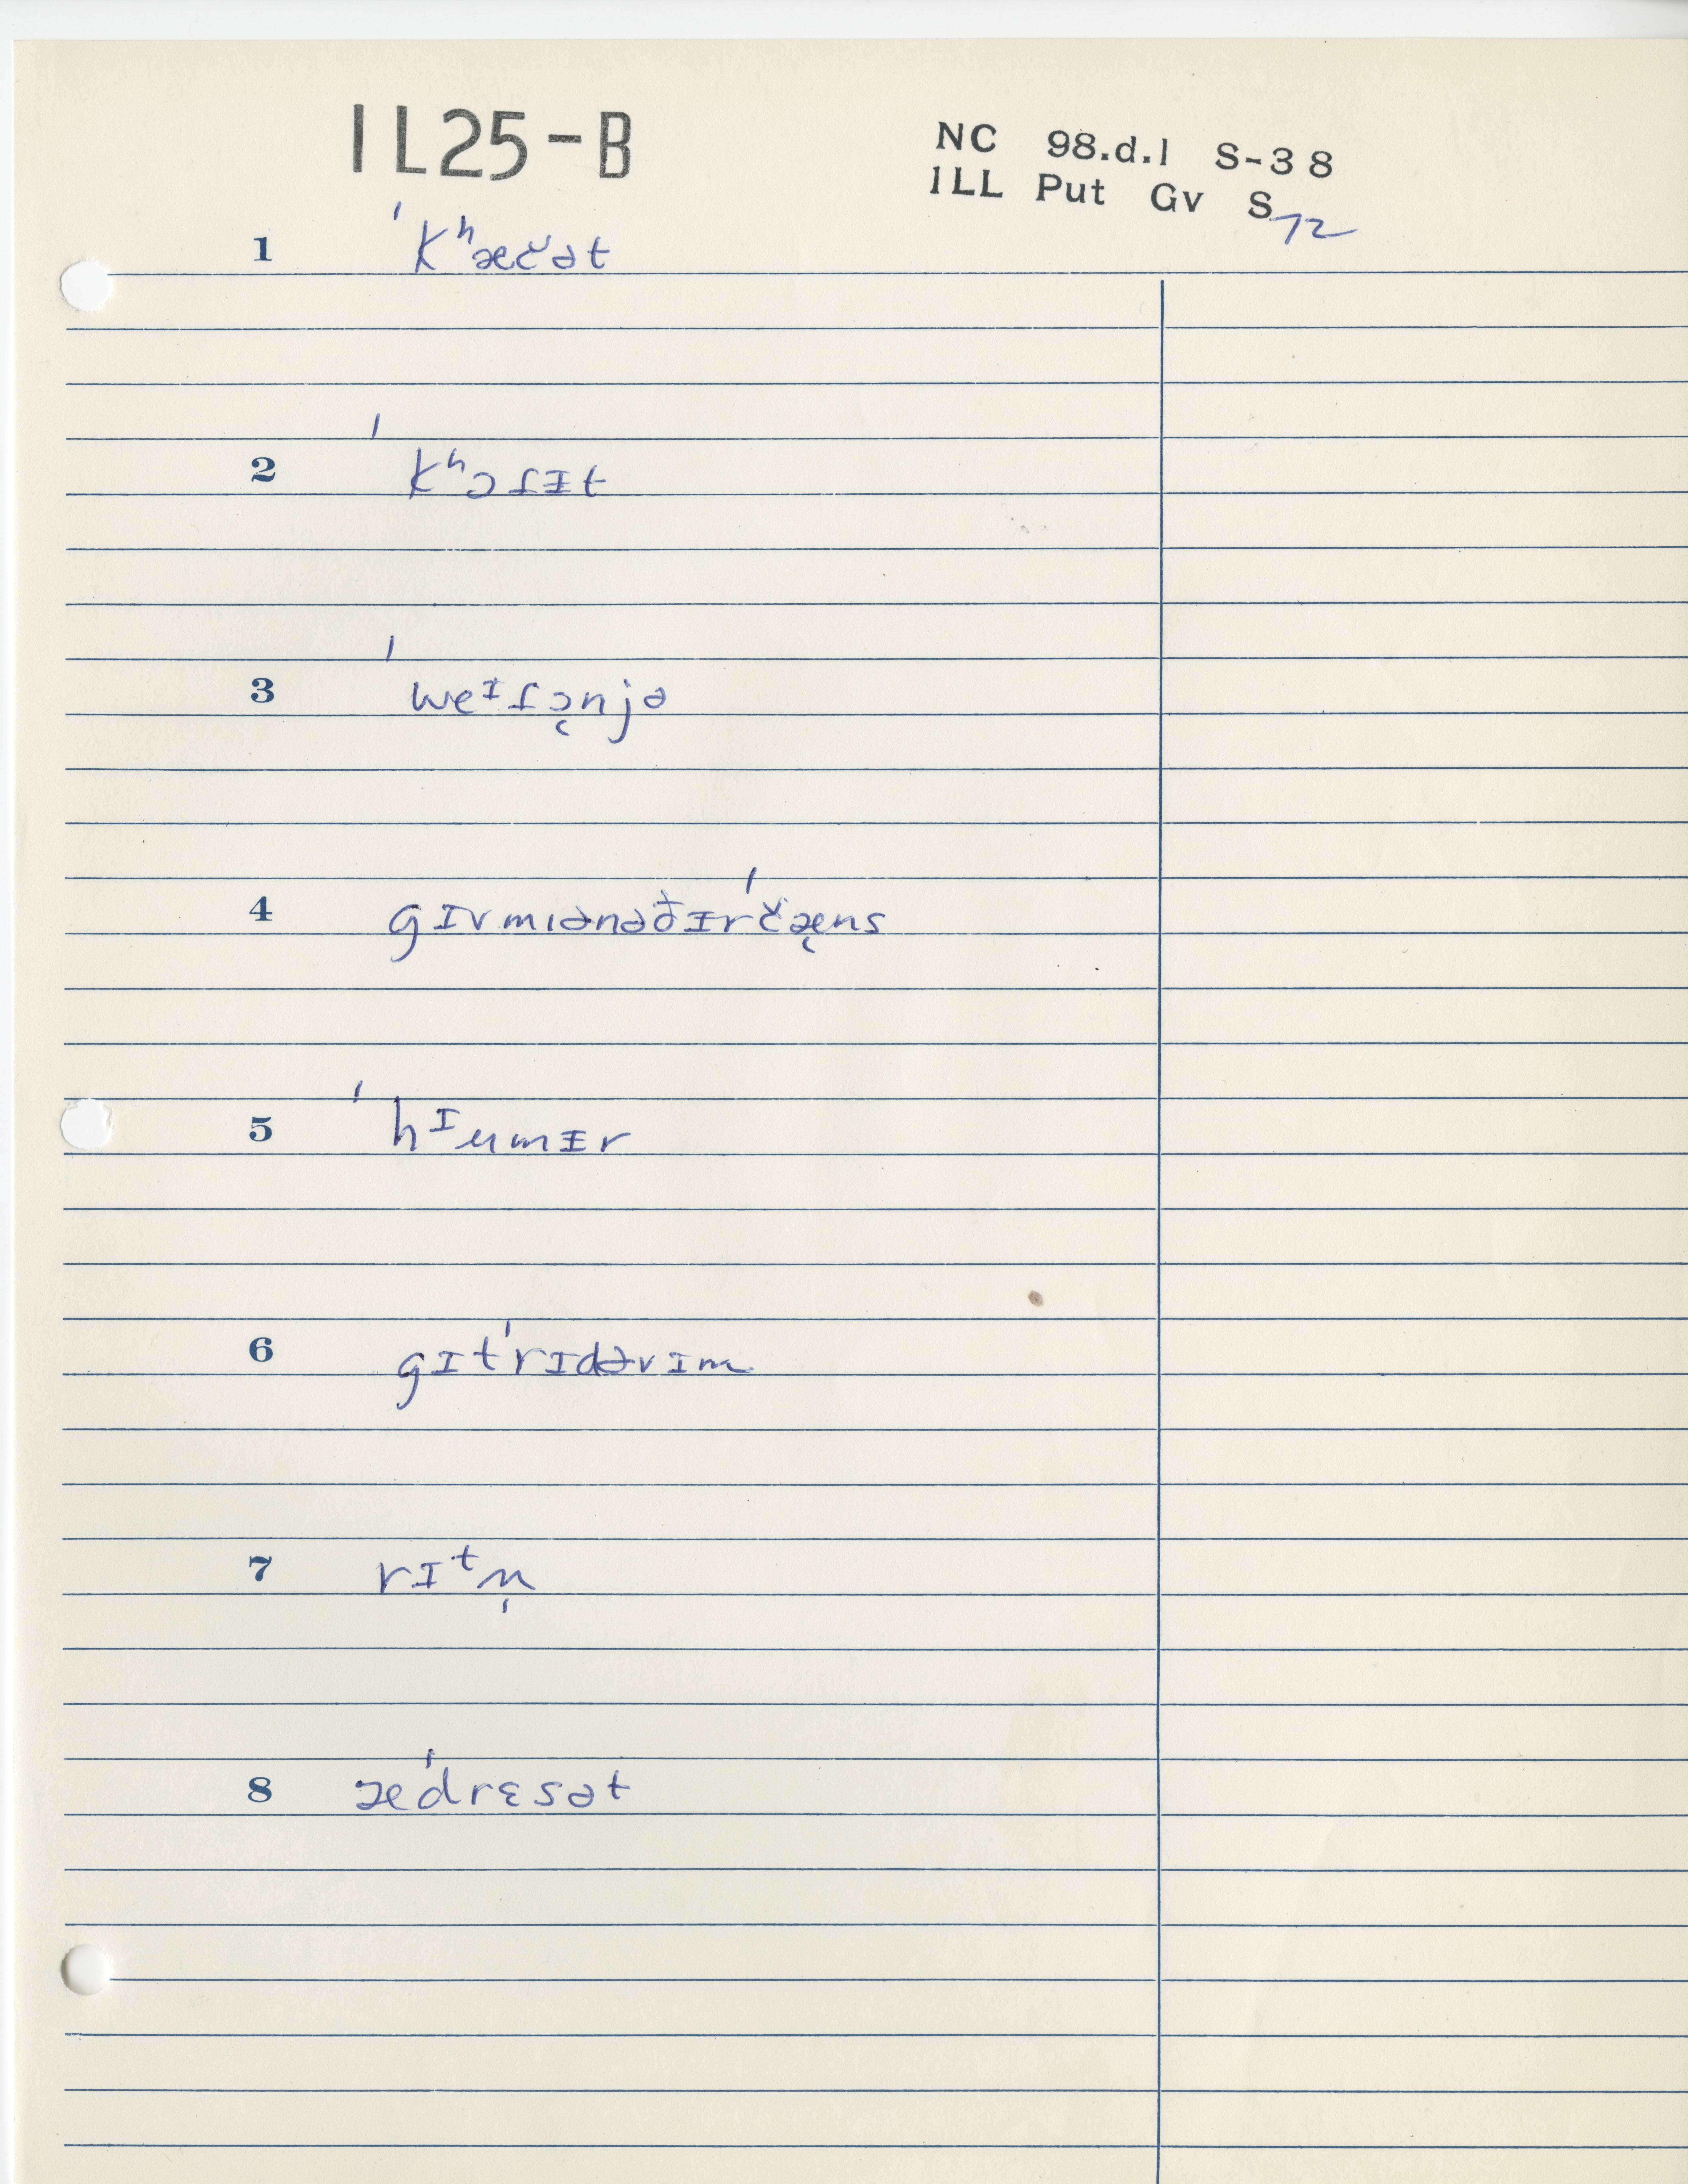 IL25-B
NC 98.d.1 S-38
ILL Put Gv S72
1 ˈkʰæčət
2 ˈkʰɔſɪt
3 ˈweᶦſɔ̨njə
4 gɪvmɪənəðɪrˈčæ̨ns
5 ˈhᶦumɪr
6 gɪtˈrɪdəvɪm
7 rɪᵗn̩
8 æˈdrɛsət